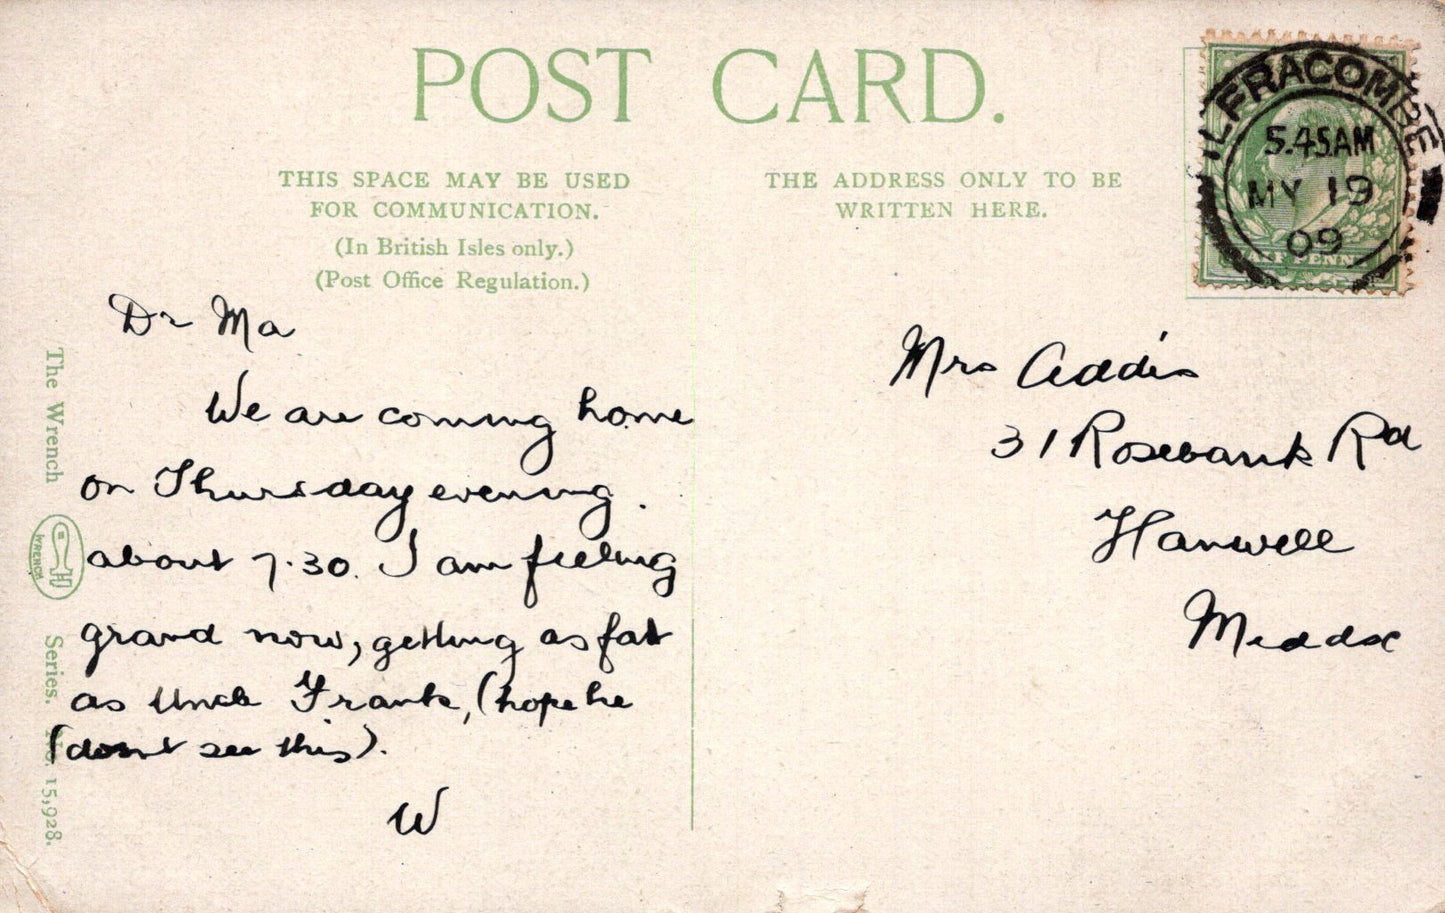 POST CARD.
THIS SPACE MAY BE USED
FOR COMMUNICATION.
(In British Isles only.)
(Post Office Regulation.)
THE ADDRESS ONLY TO BE
WRITTEN HERE.
ILFRACOMBE
5.45AM
MY 19
09
HALF PENNY
The Wrench
WRENCH
Series. No. 15,928.
Dr Ma
We are coming home
on Thursday evening.
about 7.30. I am feeling
grand now, getting as fat
as Uncle Frank, (hope he
(dont see this).
W
Mrs Addis
31 Rosebank Rd
Hanwell
Middx